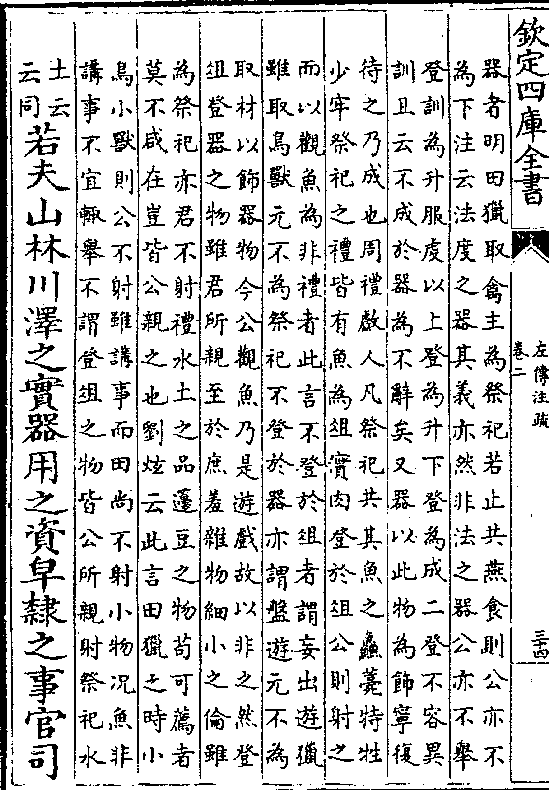 欽定四庫全書
左傳注疏
卷二
三十四
器者明田獵取禽主為祭祀若止共燕食則公亦不
為下注云法度之器其義亦然非法之器公亦不舉
登訓為升服虔以上登為升下登為成二登不容異
訓且云不成於器為不辭矣又器以此物為飾寧復
待之乃成也周禮䱷人凡祭祀共其魚之鱻薧特牲
少牢祭祀之禮皆有魚為俎實肉登於俎公則射之
而以觀魚為非禮者此言不登於俎者謂妄出遊獵
雖取鳥獸元不為祭祀不登於器亦謂盤遊元不為
取材以飾器物今公觀魚乃是遊戲故以非之然登
俎登器之物雖君所親至於庶羞雜物細小之倫雖
為祭祀亦君不射禮水土之品籩豆之物苟可薦者
莫不咸在豈皆公親之也劉炫云此言田獵之時小
鳥小獸則公不射雖講事而田尚不射小物況魚非
講事不宜輒舉不謂登俎之物皆公所親射祭祀水
土云
云同
若夫山林川澤之實器用之資皁隸之事官司